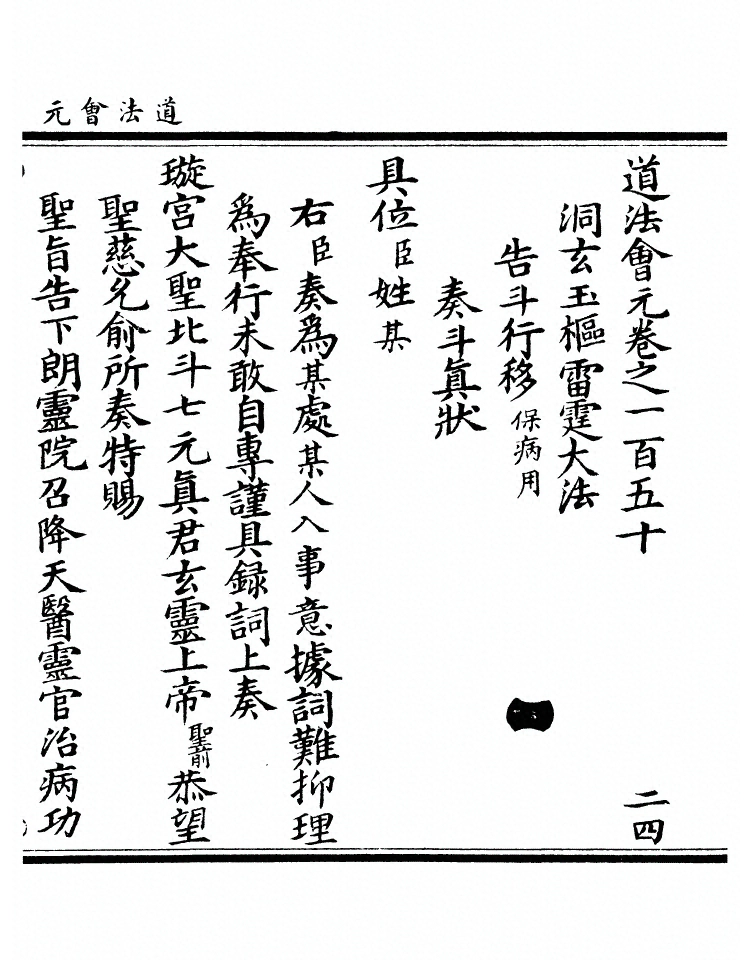 道法會元
道法會元卷之一百五十 二四
洞玄玉樞雷霆大法
告斗行移保病用
奏斗眞狀
具位臣姓某
右臣奏爲某處某人入事意據詞難抑理
爲奉行未敢自專謹具録詞上奏
璇宮大聖北斗七元眞君玄靈上帝聖前恭望
聖慈允俞所奏特賜
聖旨告下朗靈院召降天醫靈官治病功